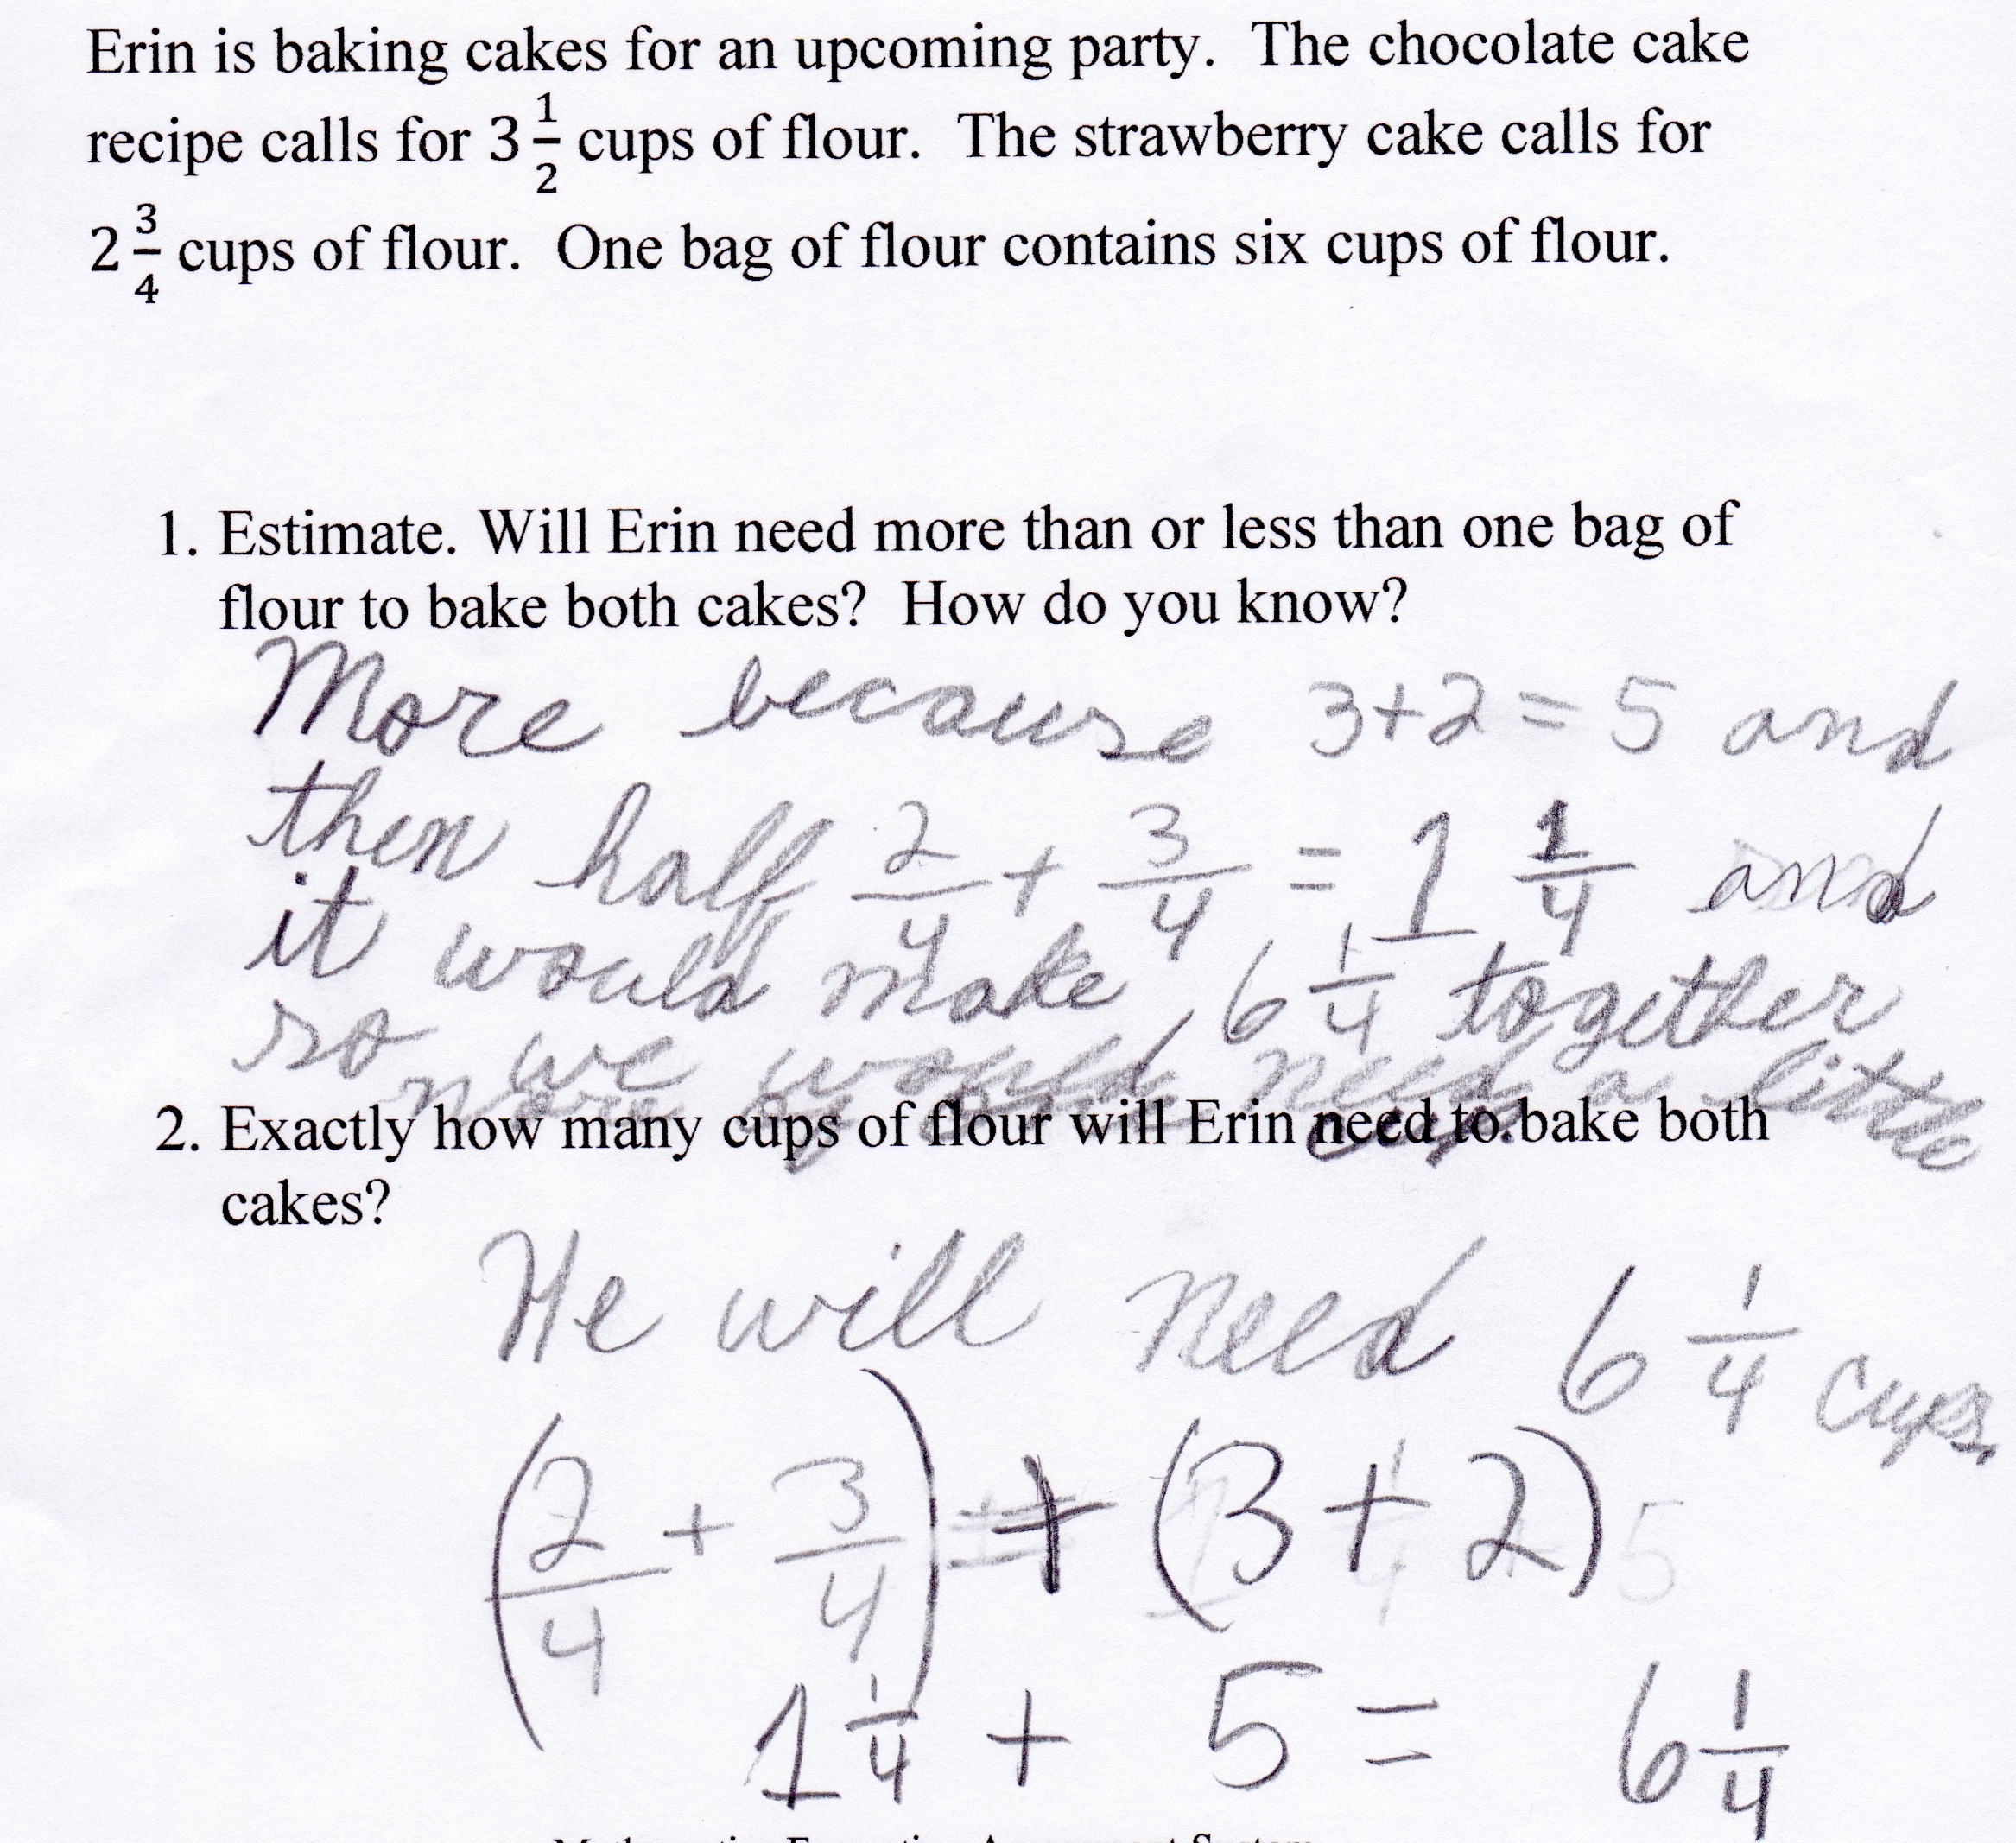 Erin is baking cakes for an upcoming party. The chocolate cake
recipe calls for 3 1/2 cups of flour. The strawberry cake calls for
2 3/4 cups of flour. One bag of flour contains six cups of flour.
1. Estimate. Will Erin need more than or less than one bag of
flour to bake both cakes? How do you know?
More because 3+2=5 and
then half 2/4 + 3/4 = 1 1/4 and
it would make 6 1/4 together
so we would need a little
more
2. Exactly how many cups of flour will Erin need to bake both
cakes?
He will need 6 1/4 cups.
(2/4 + 3/4) + (3+2)
1 1/4 + 5 = 6 1/4